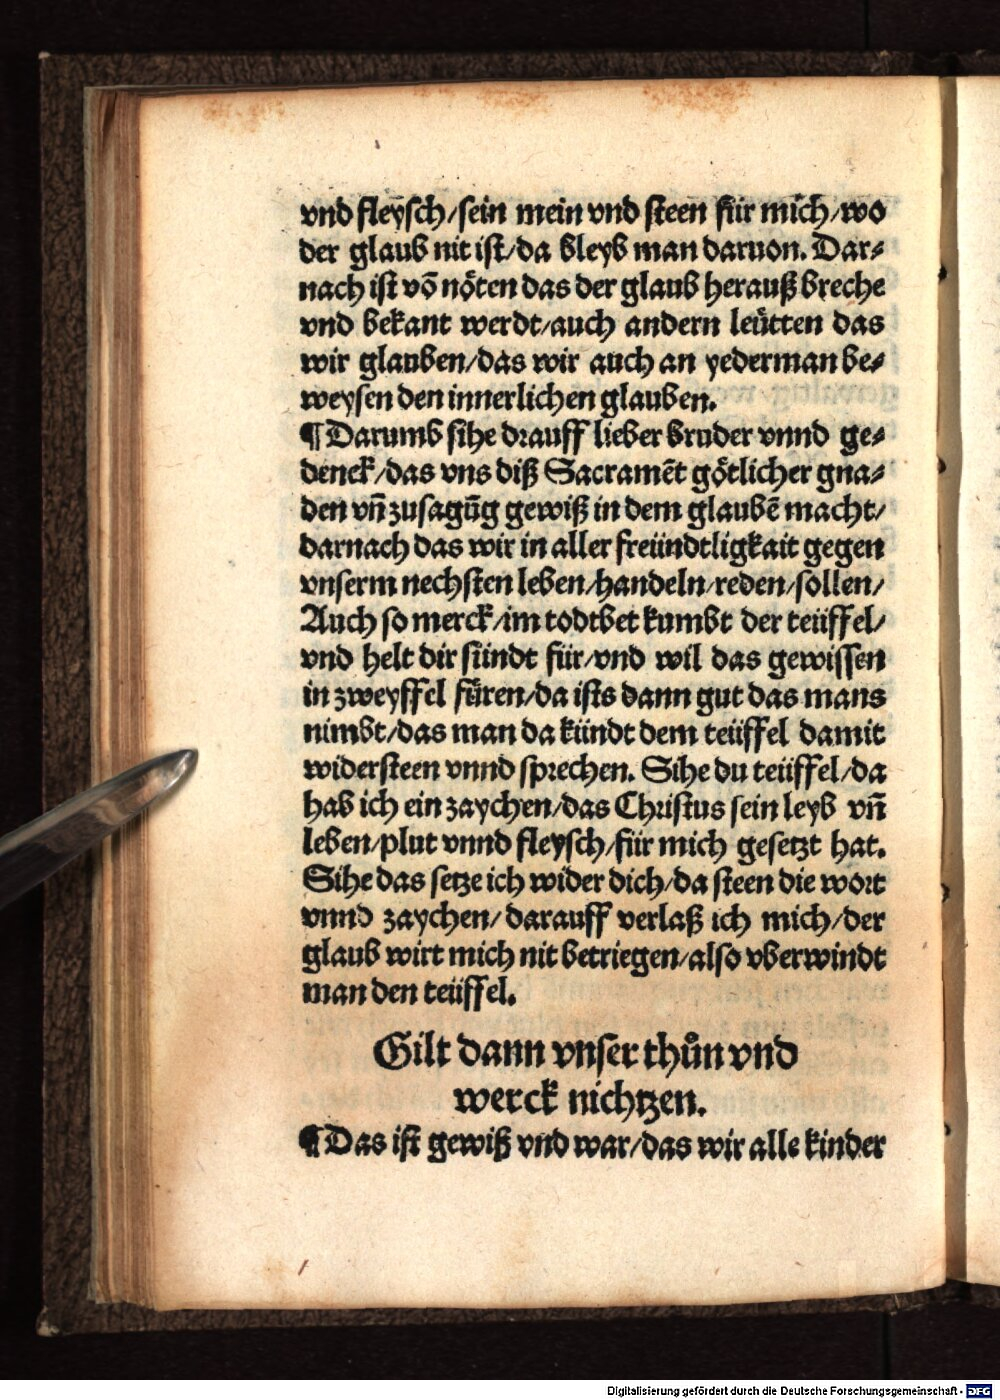 vnd fleysch/sein mein vnd steen für mich/wo
der glaub nit ist/da bleyb man daruon. Dar⸗
nach ist võ nöten das der glaub herauß breche
vnd bekant werdt/auch andern leütten das
wir glauben/das wir auch an yederman be⸗
weysen den innerlichen glauben.
¶Darumb sihe drauff lieber bruder vnnd ge⸗
denck/das vns diß Sacramẽt götlicher gna⸗
den vñ zusagũg gewiß in dem glaubẽ macht/
darnach das wir in aller freündtligkait gegen
vnserm nechsten leben/handeln/reden/sollen/
Auch so merck/im todtbet kumbt der teüffel/
vnd helt dir sündt für/vnd wil das gewissen
in zweyffel füren/da ists dann gut das mans
nimbt/das man da kündt dem teüffel damit
widersteen vnnd sprechen. Sihe du teüffel/da
hab ich ein zaychen/das Christus sein leyb vñ
leben/plut vnnd fleysch/für mich gesetzt hat.
Sihe das setze ich wider dich/da steen die wort
vnnd zaychen/darauff verlaß ich mich/der
glaub wirt mich nit betriegen/also vberwindt
man den teüffel.
Gilt dann vnser thůn vnd
werck nichtzen.
¶Das ist gewiß vnd war/das wir alle kinder
Digitalisierung gefördert durch die Deutsche Forschungsgemeinschaft - DFG